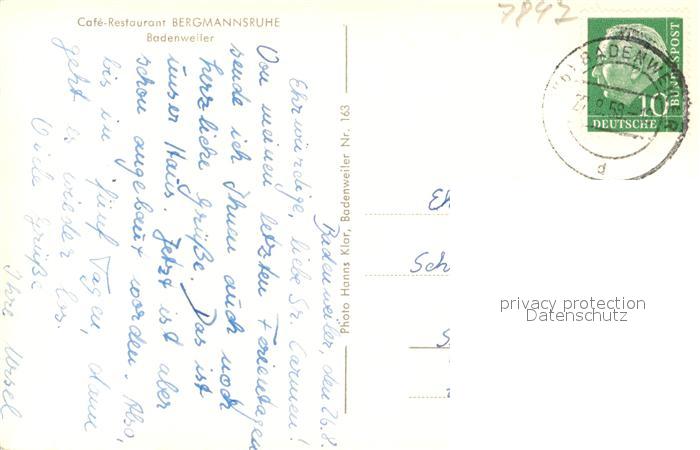 Café-Restaurant BERGMANNSRUHE
Badenweiler
Badenweiler, den 26.8.
Ehrwürdige, liebe Sr. Carmen!
Von meinen letzten Ferientagen
sende ich Ihnen auch noch
herzliche Grüße. Das ist
unser Haus. Jetzt ist aber
schon angebaut worden. Also,
bis in fünf Tagen, dann
geht es wieder los.
Viele Grüße
Ihre Ursel
Photo Hanns Klar, Badenweiler Nr. 163
7847
BADENWEILER
d
10
DEUTSCHE
BUNDESPOST
Eh
Sch
privacy protection
Datenschutz